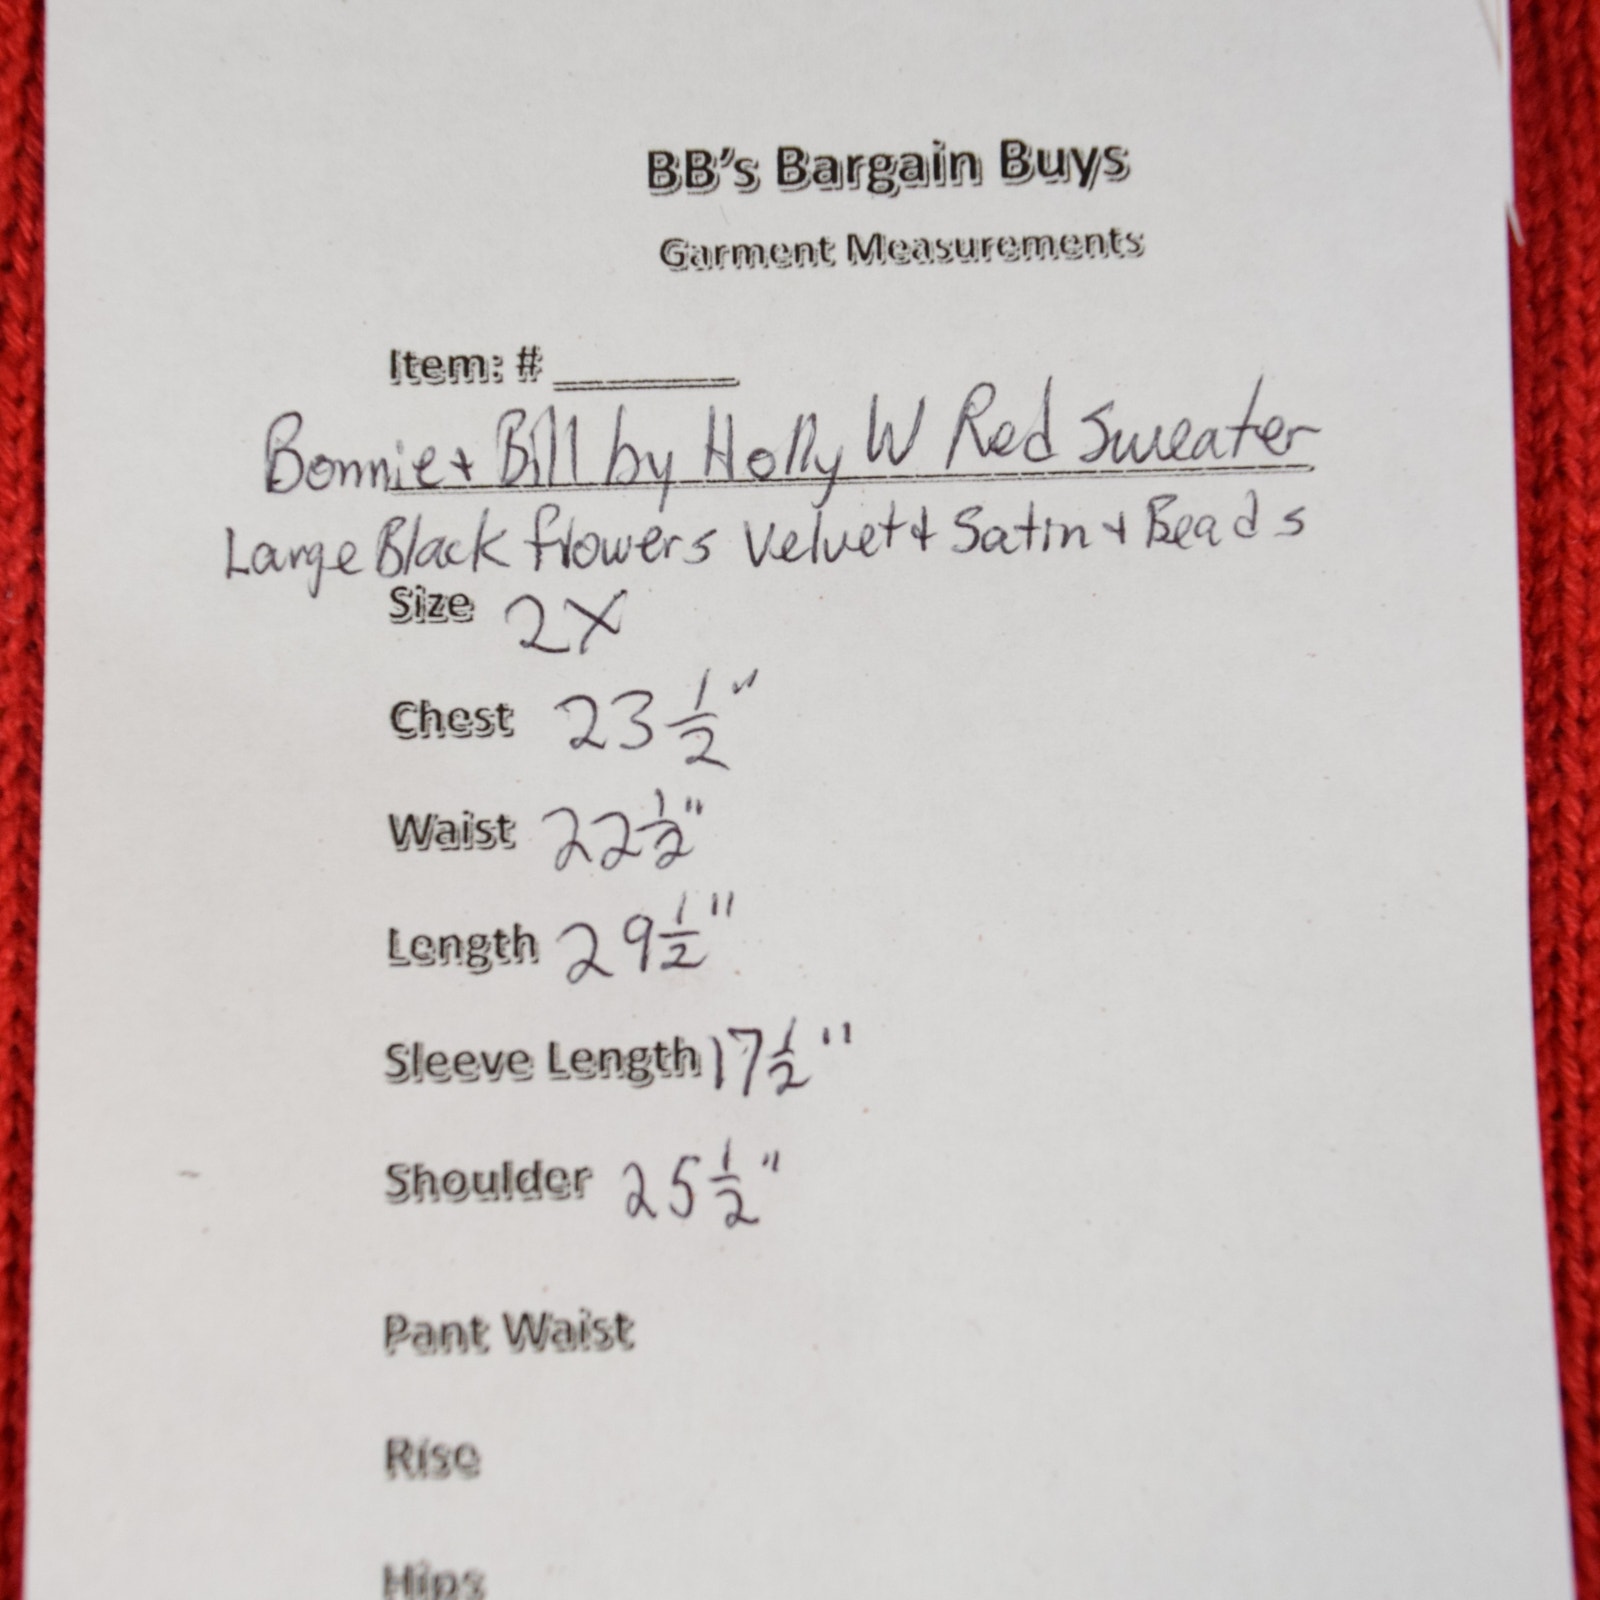 BB's Bargain Buys
Garment Measurements
Item: # ______
Bonnie + Bill by Holly W Red Sweater
Large Black flowers Velvet + Satin + Beads
Size 2X
Chest 23 1/2"
Waist 22 1/2"
Length 29 1/2"
Sleeve Length 17 1/2"
Shoulder 25 1/2"
Pant Waist
Rise
Hips